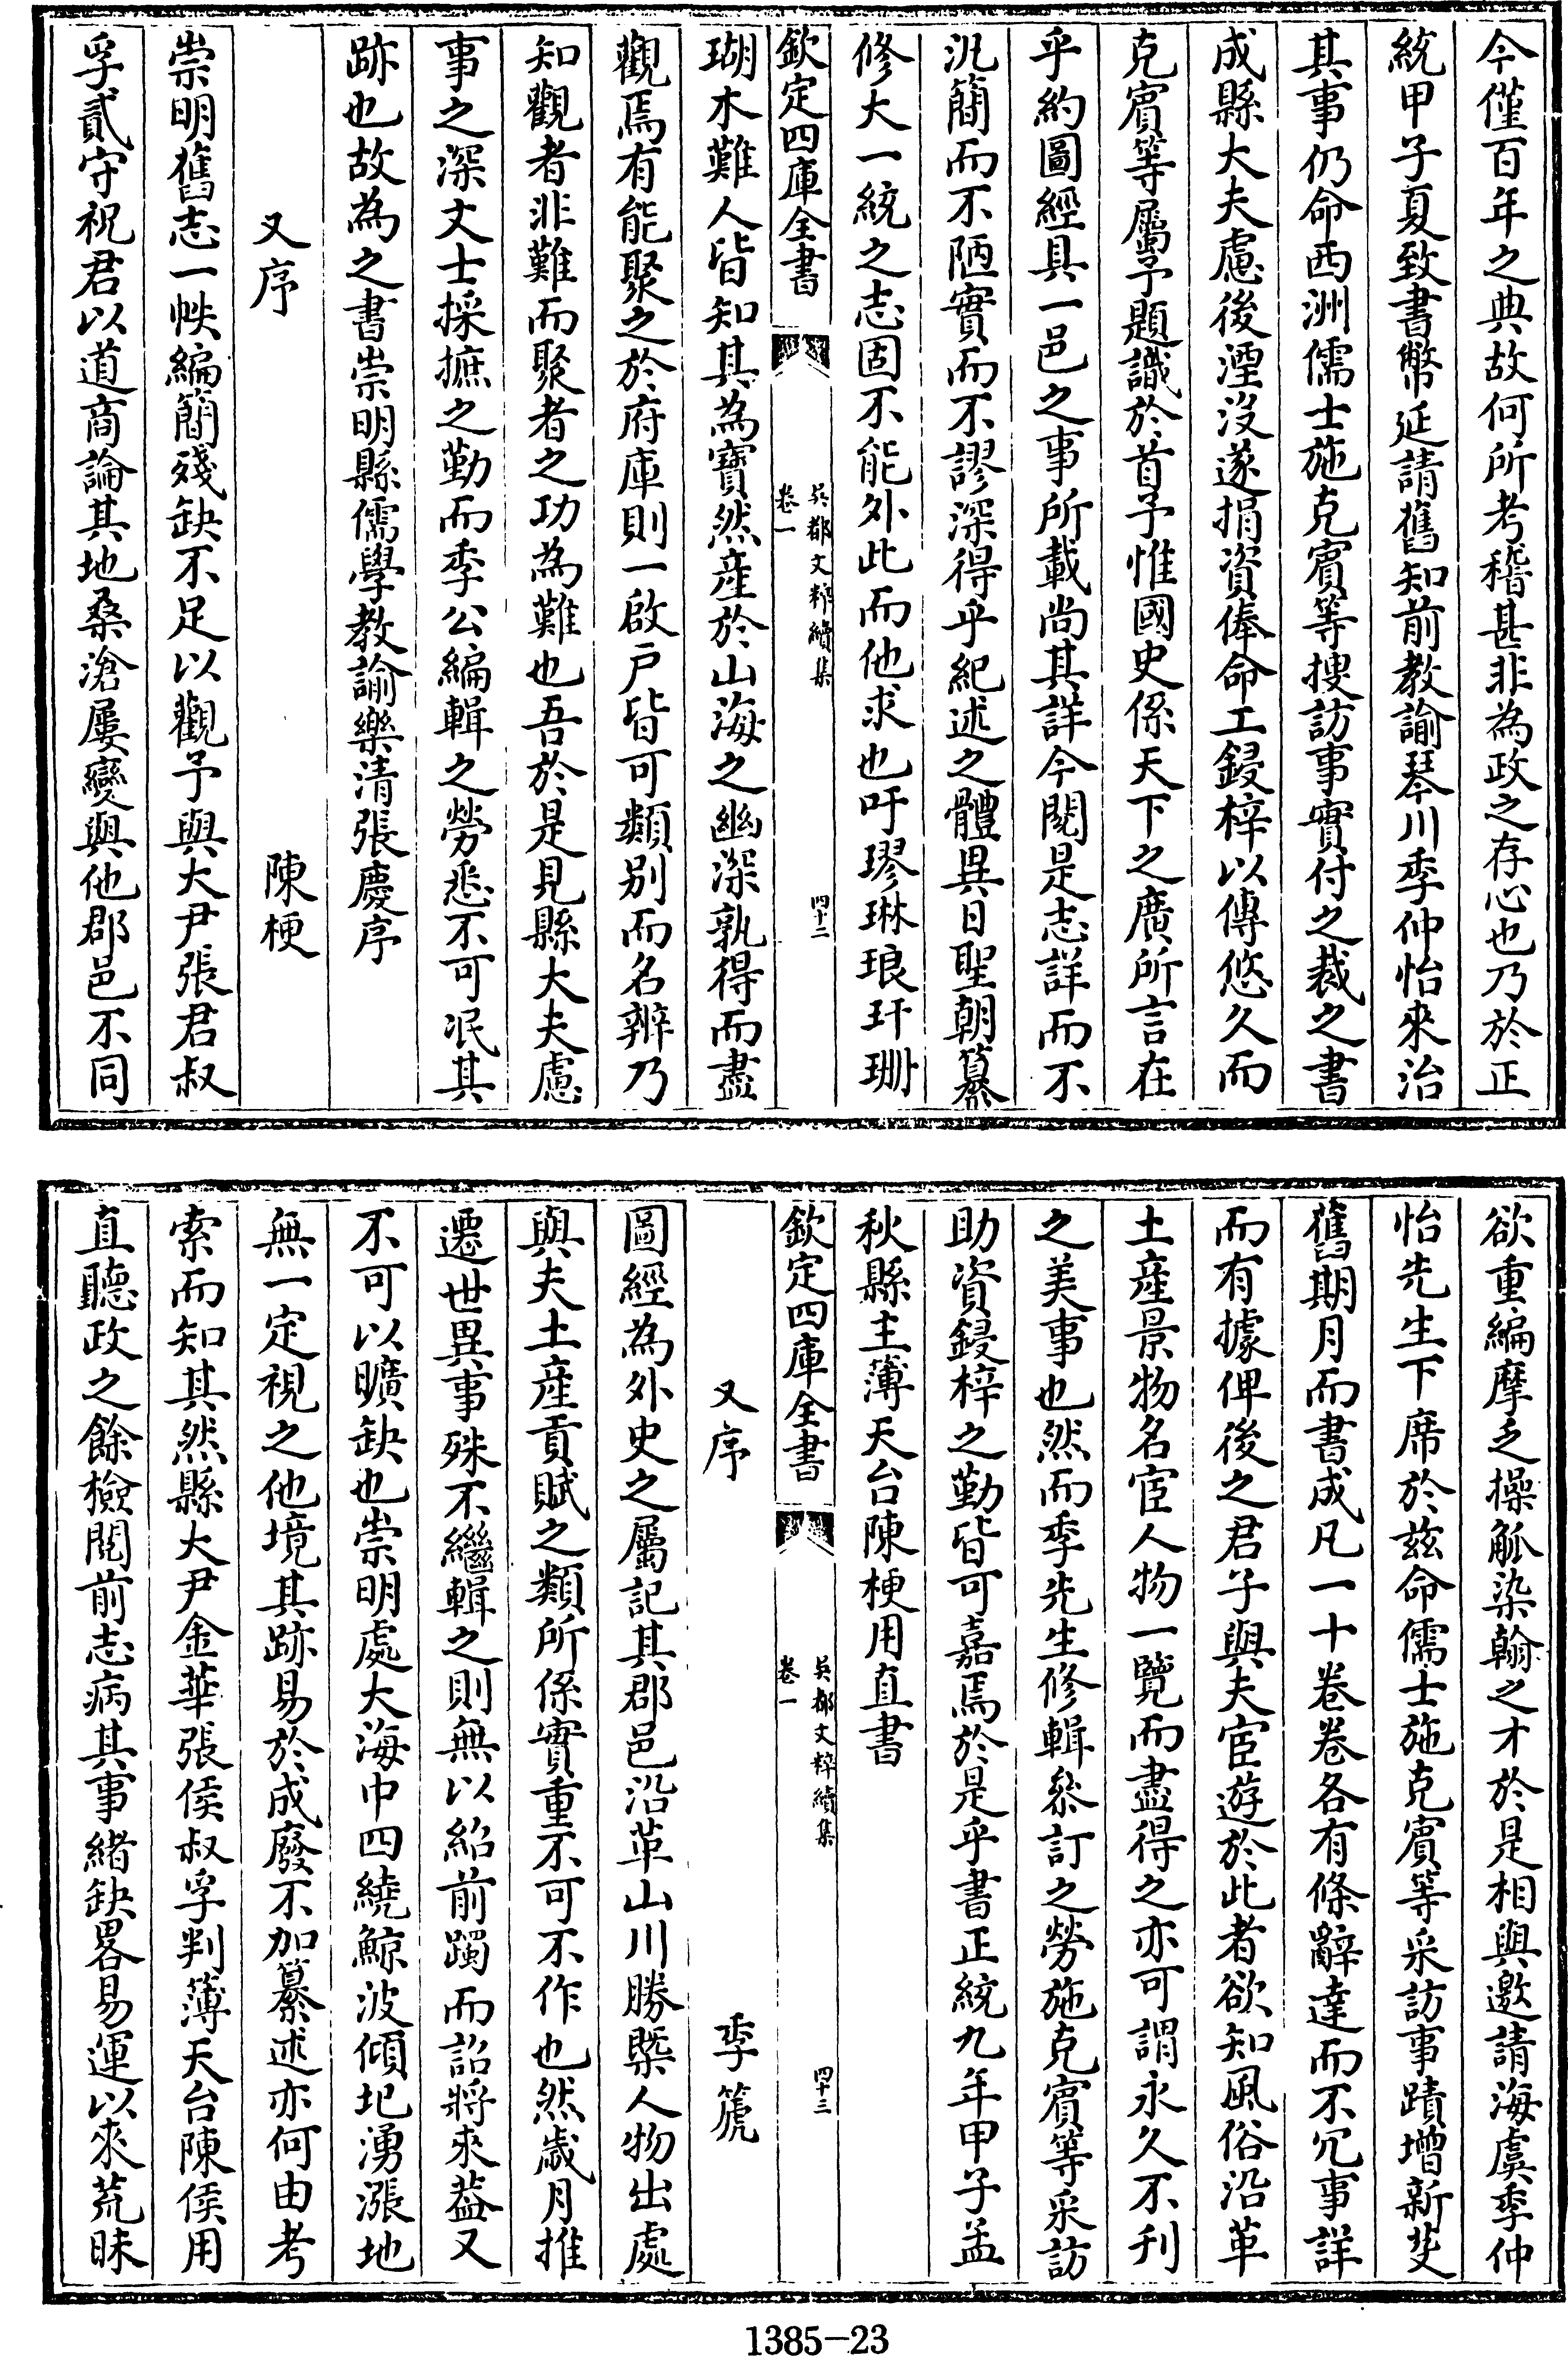 今僅百年之典故何所考稽甚非為政之存心也乃於正
統甲子夏致書幣延請舊知前教諭琴川季仲怡來治
其事仍命西洲儒士施克賓等搜訪事實付之裁之書
成縣大夫慮後湮沒遂捐資俸命工鋟梓以傳悠久而
克賓等屬予題識於首予惟國史係天下之廣所言在
乎約圖經具一邑之事所載尚其詳今閱是志詳而不
汎簡而不陋實而不謬深得乎紀述之體異日聖朝纂
修大一統之志固不能外此而他求也吁璆琳琅玕珊
欽定四庫全書
吳都文粹續集
卷一
四十二
瑚木難人皆知其為寶然産於山海之幽深孰得而盡
觀焉有能聚之於府庫則一啟戶皆可類别而名辨乃
知觀者非難而聚者之功為難也吾於是見縣大夫慮
事之深文士採摭之勤而季公編輯之勞悉不可泯其
跡也故為之書崇明縣儒學教諭樂清張慶序
又序
陳梗
崇明舊志一帙編簡殘缺不足以觀予與大尹張君叔
孚貳守祝君以道商論其地桑滄屢變與他郡邑不同
欲重編摩乏操觚染翰之才於是相與邀請海虞季仲
怡先生下席於兹命儒士施克賓等采訪事蹟增新芟
舊期月而書成凡一十卷卷各有條辭達而不冗事詳
而有據俾後之君子與夫宦遊於此者欲知風俗沿革
土産景物名宦人物一覽而盡得之亦可謂永久不刊
之美事也然而季先生修輯叅訂之勞施克賓等采訪
助資鋟梓之勤皆可嘉焉於是乎書正統九年甲子孟
秋縣主薄天台陳梗用直書
欽定四庫全書
吳都文粹續集
卷一
四十三
又序
季篪
圖經為外史之屬記其郡邑沿革山川勝槩人物出處
與夫土産貢賦之類所係實重不可不作也然歲月推
遷世異事殊不繼輯之則無以紹前躅而詔將來葢又
不可以曠缺也崇明處大海中四繞鯨波傾圮湧漲地
無一定視之他境其跡易於成廢不加纂述亦何由考
索而知其然縣大尹金華張侯叔孚判薄天台陳侯用
直聽政之餘檢閱前志病其事緒缺畧易運以來荒昧
1385-23